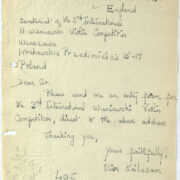 England
of the 3rd International
H. Wieniawski Violin Competition
Warszawa
Krakowskie Przedmiescie 15-17
Poland
Dear Sir,
Please send me an entry form for
the 3rd International Wieniawski Violin
Competition, direct to the above address
Thanking you,
Yours faithfully,
Kailasam